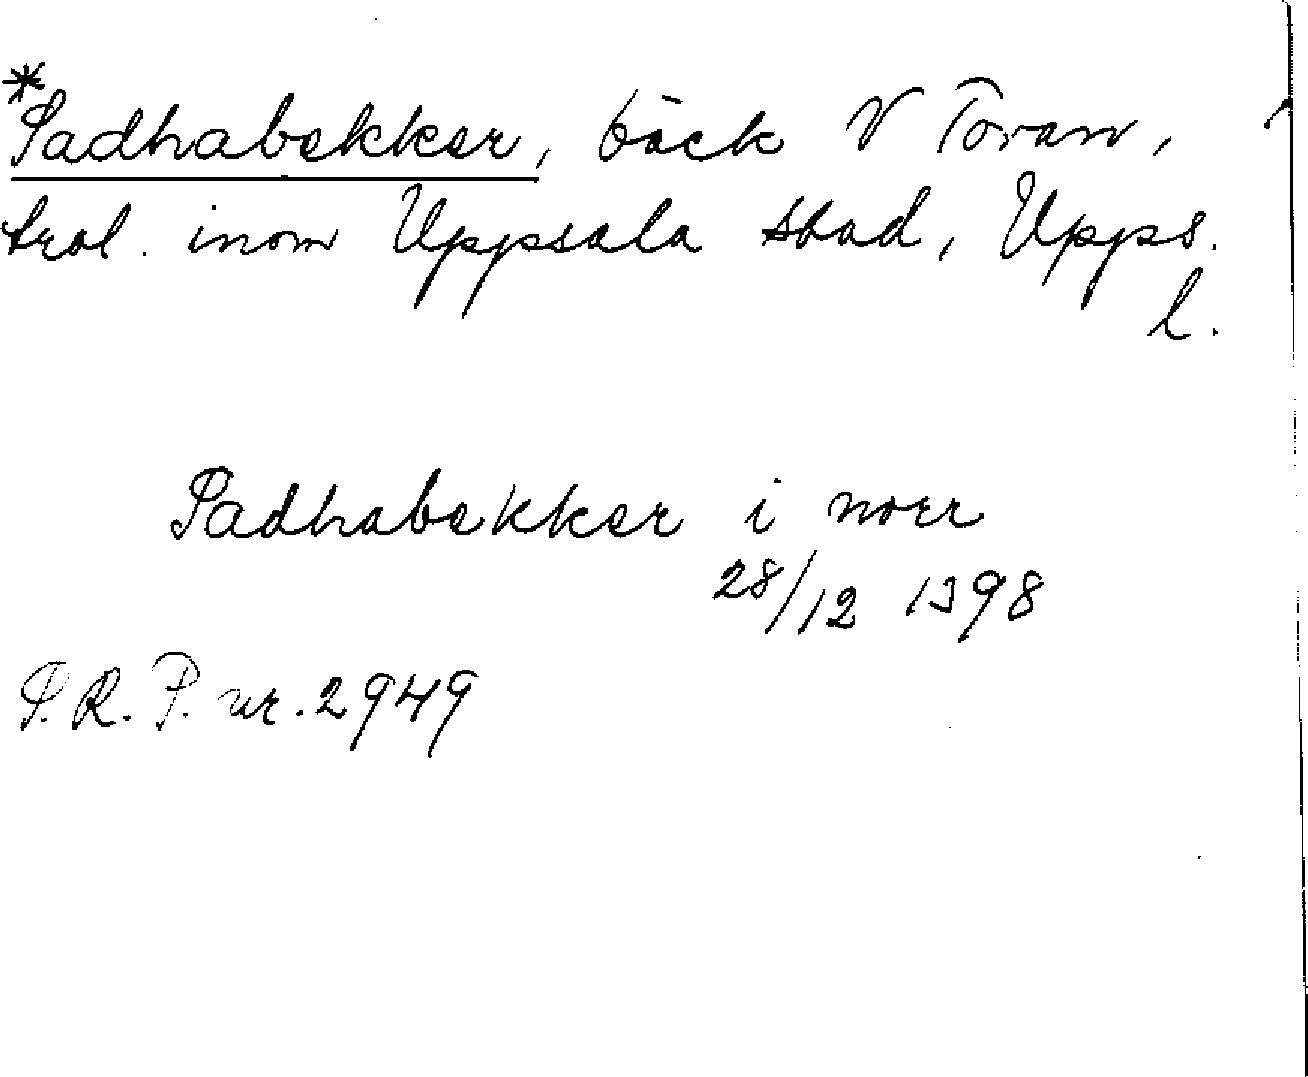 *Sadhabekker, bäck V
trol. inom Uppsala stad, Upps.
l.
Sadhabekker i norr
28/12 1398
S. R. P. nr. 2949